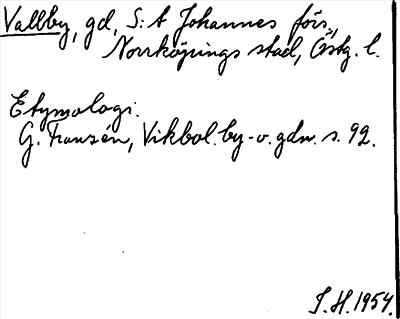 Vallby, gd, S:t Johannes förs.,
Norrköpings stad, Östg. l.
Etymologi:
G. Franzén, Vikbol. by- o. gdn. s. 92.
I.H. 1954.